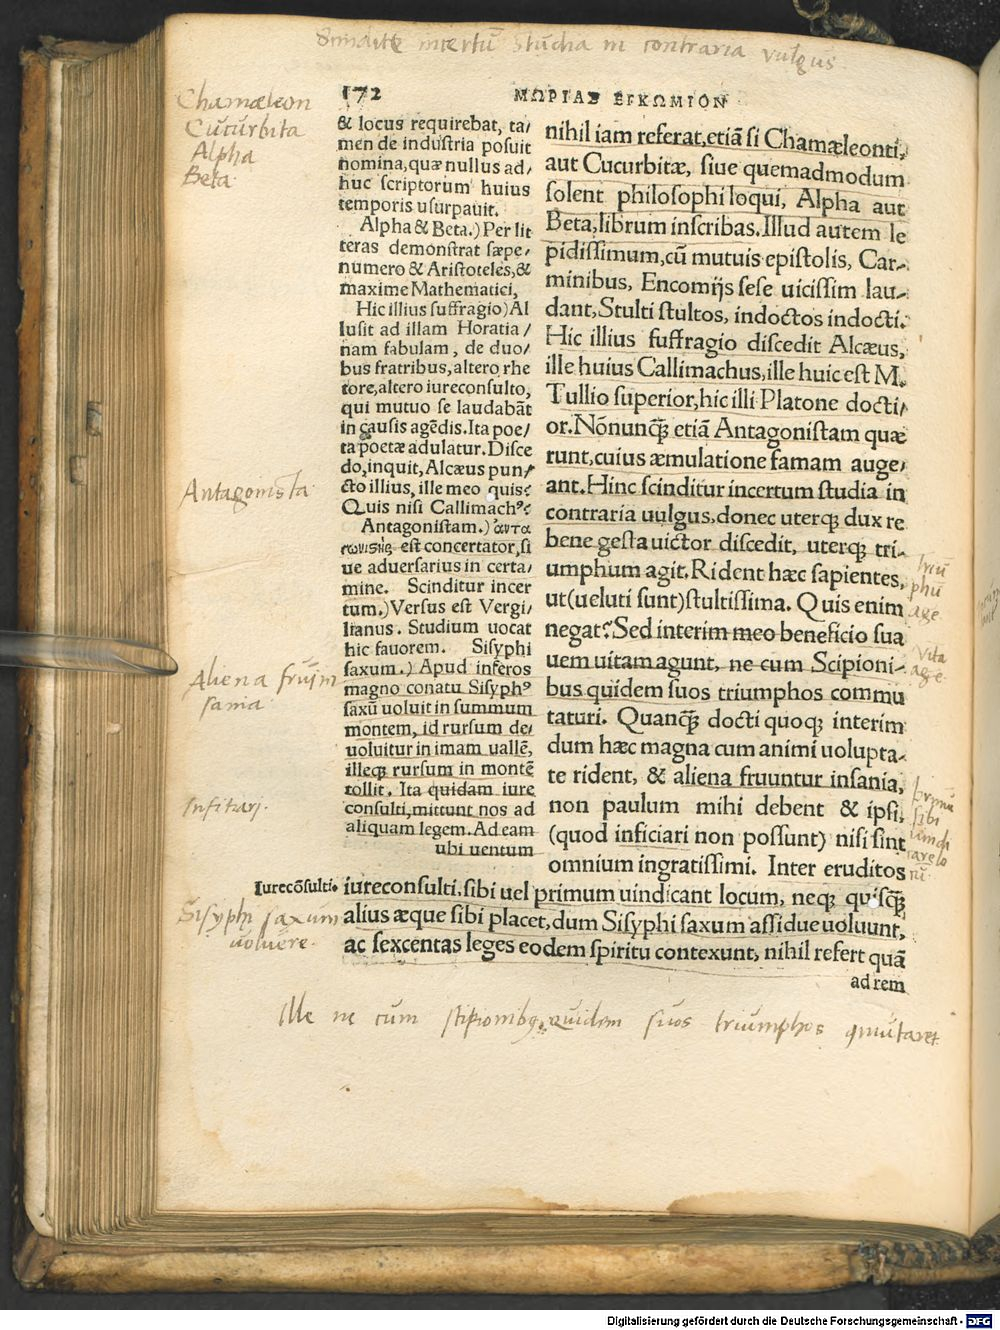 Scinditur incertu͞ Studia in contraria vulgus
172
ΜΩΡΙΑΣ ΕΓΚΩΜΙΟΝ
Chamæleon
Cucurbita
Alpha
Beta
& locus requirebat, ta/
men de industria posuit
nomina, quæ nullus ad/
huc scriptorum huius
temporis usurpauit.
Alpha & Beta.) Per lit
teras demonstrat sæpe/
numero & Aristoteles, &
maxime Mathematici,
Hic illius suffragio) Al
lusit ad illam Horatia/
nam fabulam, de duo/
bus fratribus, altero rhe
tore, altero iureconsulto,
qui mutuo se laudabãt
in causis agẽdis. Ita poe/
ta poetæ adulatur. Disce
do, inquit, Alcæus pun/
cto illius, ille meo quis?
Quis nisi Callimachꝰ?
Antagonistam.) ἀντα
γωνιστὴς est concertator, si
ue aduersarius in certa/
mine. Scinditur incer
tum.) Versus est Vergi/
lianus. Studium uocat
hic fauorem. Sisyphi
saxum.) Apud inferos
magno conatu Sisyphꝰ
saxũ uoluit in summum
montem, id rursum de/
uoluitur in imam uallẽ,
illeqꝫ rursum in montẽ
tollit. Ita quidam iure
consulti, mittunt nos ad
aliquam legem. Ad eam
ubi uentum
Antagonista
Aliena frui in
sania
Infitiarj.
nihil iam referat, etiã si Chamæleonti,
aut Cucurbitæ, siue quemadmodum
solent philosophi loqui, Alpha aut
Beta, librum inscribas. Illud autem le
pidissimum, cũ mutuis epistolis, Car-
minibus, Encomijs sese uicissim lau-
dant, Stulti stultos, indoctos indocti.
Hic illius suffragio discedit Alcæus,
ille huius Callimachus, ille huic est M.
Tullio superior, hic illi Platone docti/
or. Nõnunqꝫ etiã Antagonistam quæ
runt, cuius æmulatione famam auge/
ant. Hinc scinditur incertum studia in
contraria uulgus, donec uterqꝫ dux re
bene gesta uictor discedit, uterqꝫ tri-
umphum agit. Rident hæc sapientes,
ut (ueluti sunt) stultissima. Quis enim
negat? Sed interim meo beneficio sua
uem uitam agunt, ne cum Scipioni-
bus quidem suos triumphos commu
taturi. Quanqꝫ docti quoqꝫ interim
dum hæc magna cum animi uolupta-
te rident, & aliena fruuntur insania,
non paulum mihi debent & ipsi,
(quod inficiari non possunt) nisi sint
omnium ingratissimi. Inter eruditos
triũ
phũ
age
vita
age
primũ
sibi
uindi
care lo
cũ.
Iurecõsulti.
iureconsulti, sibi uel primum uindicant locum, neqꝫ quisqꝫ
alius æque sibi placet, dum Sisyphi saxum assidue uoluunt,
ac sexcentas leges eodem spiritu contexunt, nihil refert quã
ad rem
Sisyphi saxum
uoluere.
Ille ne cum scipionibꝫ quidem suos triumphos cõmutaret
Digitalisierung gefördert durch die Deutsche Forschungsgemeinschaft - DFG